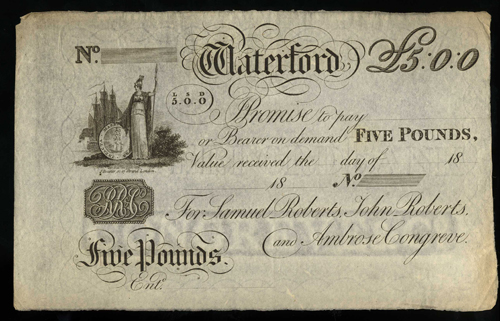 No. Waterford £5:0:0
L S D
5.0.0
I Promise to pay
or Bearer on demand FIVE POUNDS,
Value received the day of 18
18 No.
RRC
For Samuel Roberts, John Roberts,
and Ambrose Congreve.
Five Pounds.
Ent.